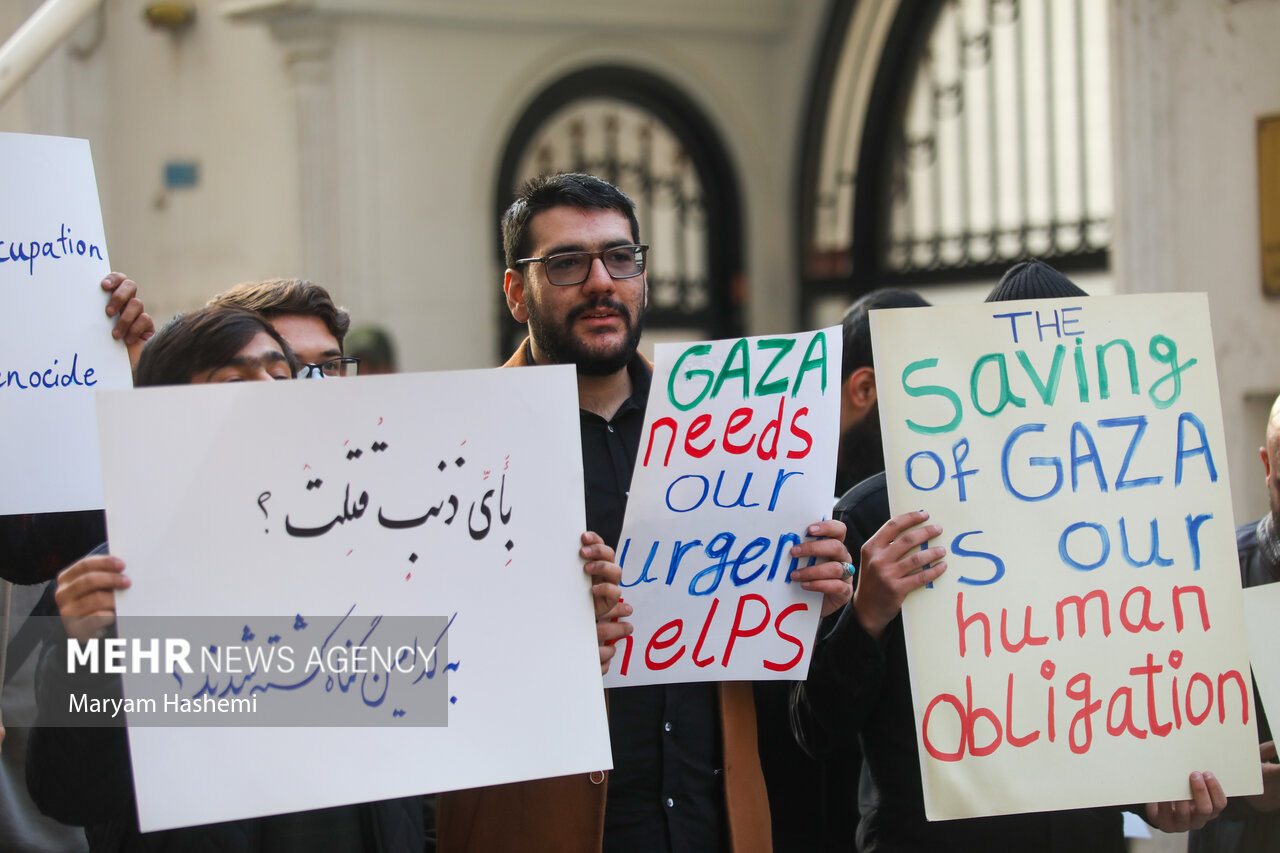 cupation
nocide
بِأَيِّ ذَنبٍ قُتِلَتْ ؟
به کدامین گناه کشته شدند ؟
GAZA
needs
our
urgent
helPs
THE
Saving
of GAZA
is our
human
obligation
MEHR NEWS AGENCY
Maryam Hashemi